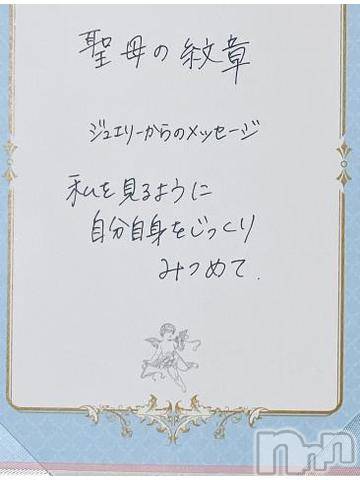 聖母の紋章
ジュエリーからのメッセージ
私を見るように
自分自身をじっくり
みつめて.